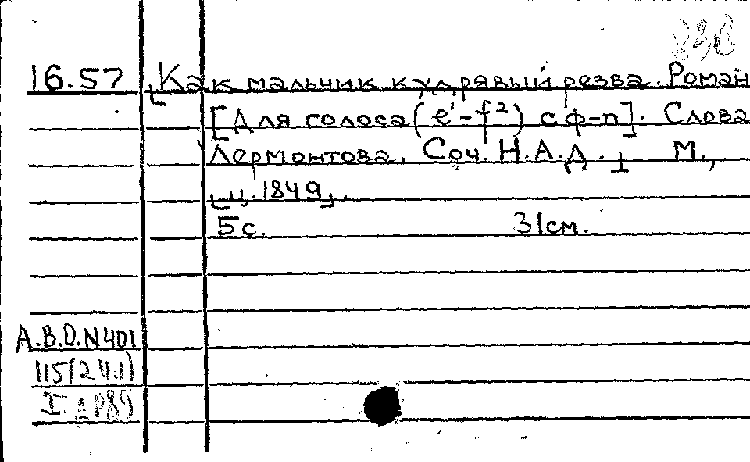 16.57 Как мальчик кудрявый резва. Роман
[Для голоса (e¹-f²) с ф-п]. Слова
Лермонтова. Соч. Н.А.Д. М.,
ц. 1849.
5с. 31см.
A.B.D.N401
115(24.1)